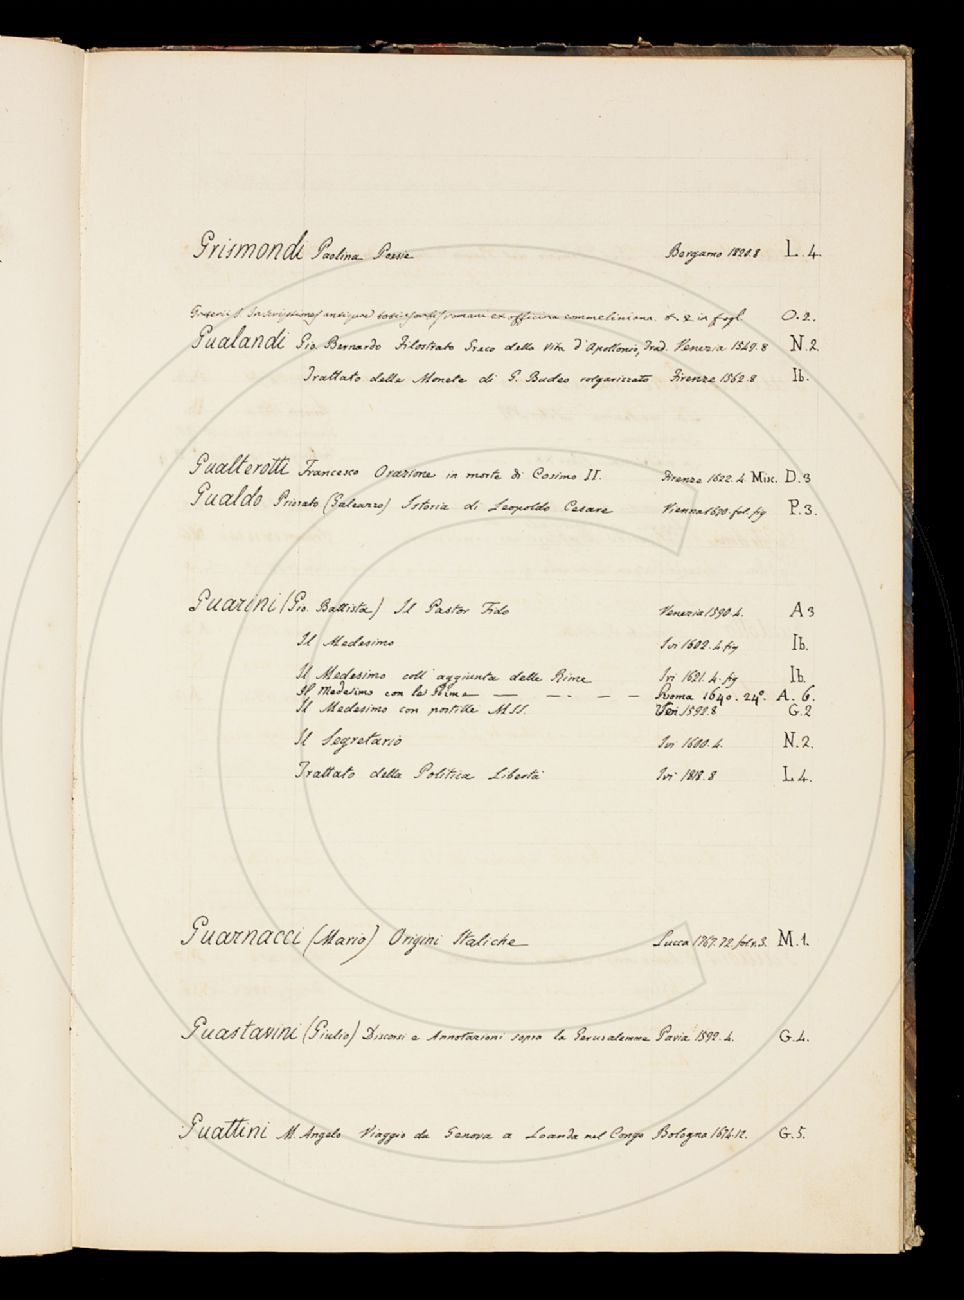 Grismondi Paolina Poesie Bergamo 1820.8 L.4.
Gruterii Inscriptiones antiquae totius orbis romani ex officina commeliniana. in fogl. O.2.
Gualandi Gio. Bernardo Filostrato Greco della Vita d'Apollonio, Trad. Venezia 1549.8 N.2.
Trattato delle Monete di G. Budeo volgarizzato Firenze 1562.8 Ib.
Gualterotti Francesco Orazione in morte di Cosimo II. Firenze 1622.4 Misc. D.3
Gualdo Priorato (Galeazzo) Istoria di Leopoldo Cesare Vienna 1670. fol. fig P.3.
Guarini (Gio. Battista) Il Pastor Fido Venezia 1590.4. A3
Il Medesimo Ivi 1602.4 fig Ib.
Il Medesimo coll'aggiunta delle Rime Ivi 1621.4. fig Ib.
Il Medesimo con le Rime — — — — — Roma 1640. 24º. A. 6.
Il Medesimo con postille MSS. Ven 1592.8 G.2
Il Segretario Ivi 1600.4. N.2.
Trattato della Politica Libertà Ivi 1818.8 L4.
Guarnacci (Mario) Origini Italiche Lucca 1767.72. fol. v.3. M.1.
Guastavini (Giulio) Discorsi e Annotazioni sopra la Gerusalemme Pavia 1592.4. G.4.
Guattini M. Angelo Viaggio da Genova a Loanda nel Congo Bologna 1674.12. G.5.